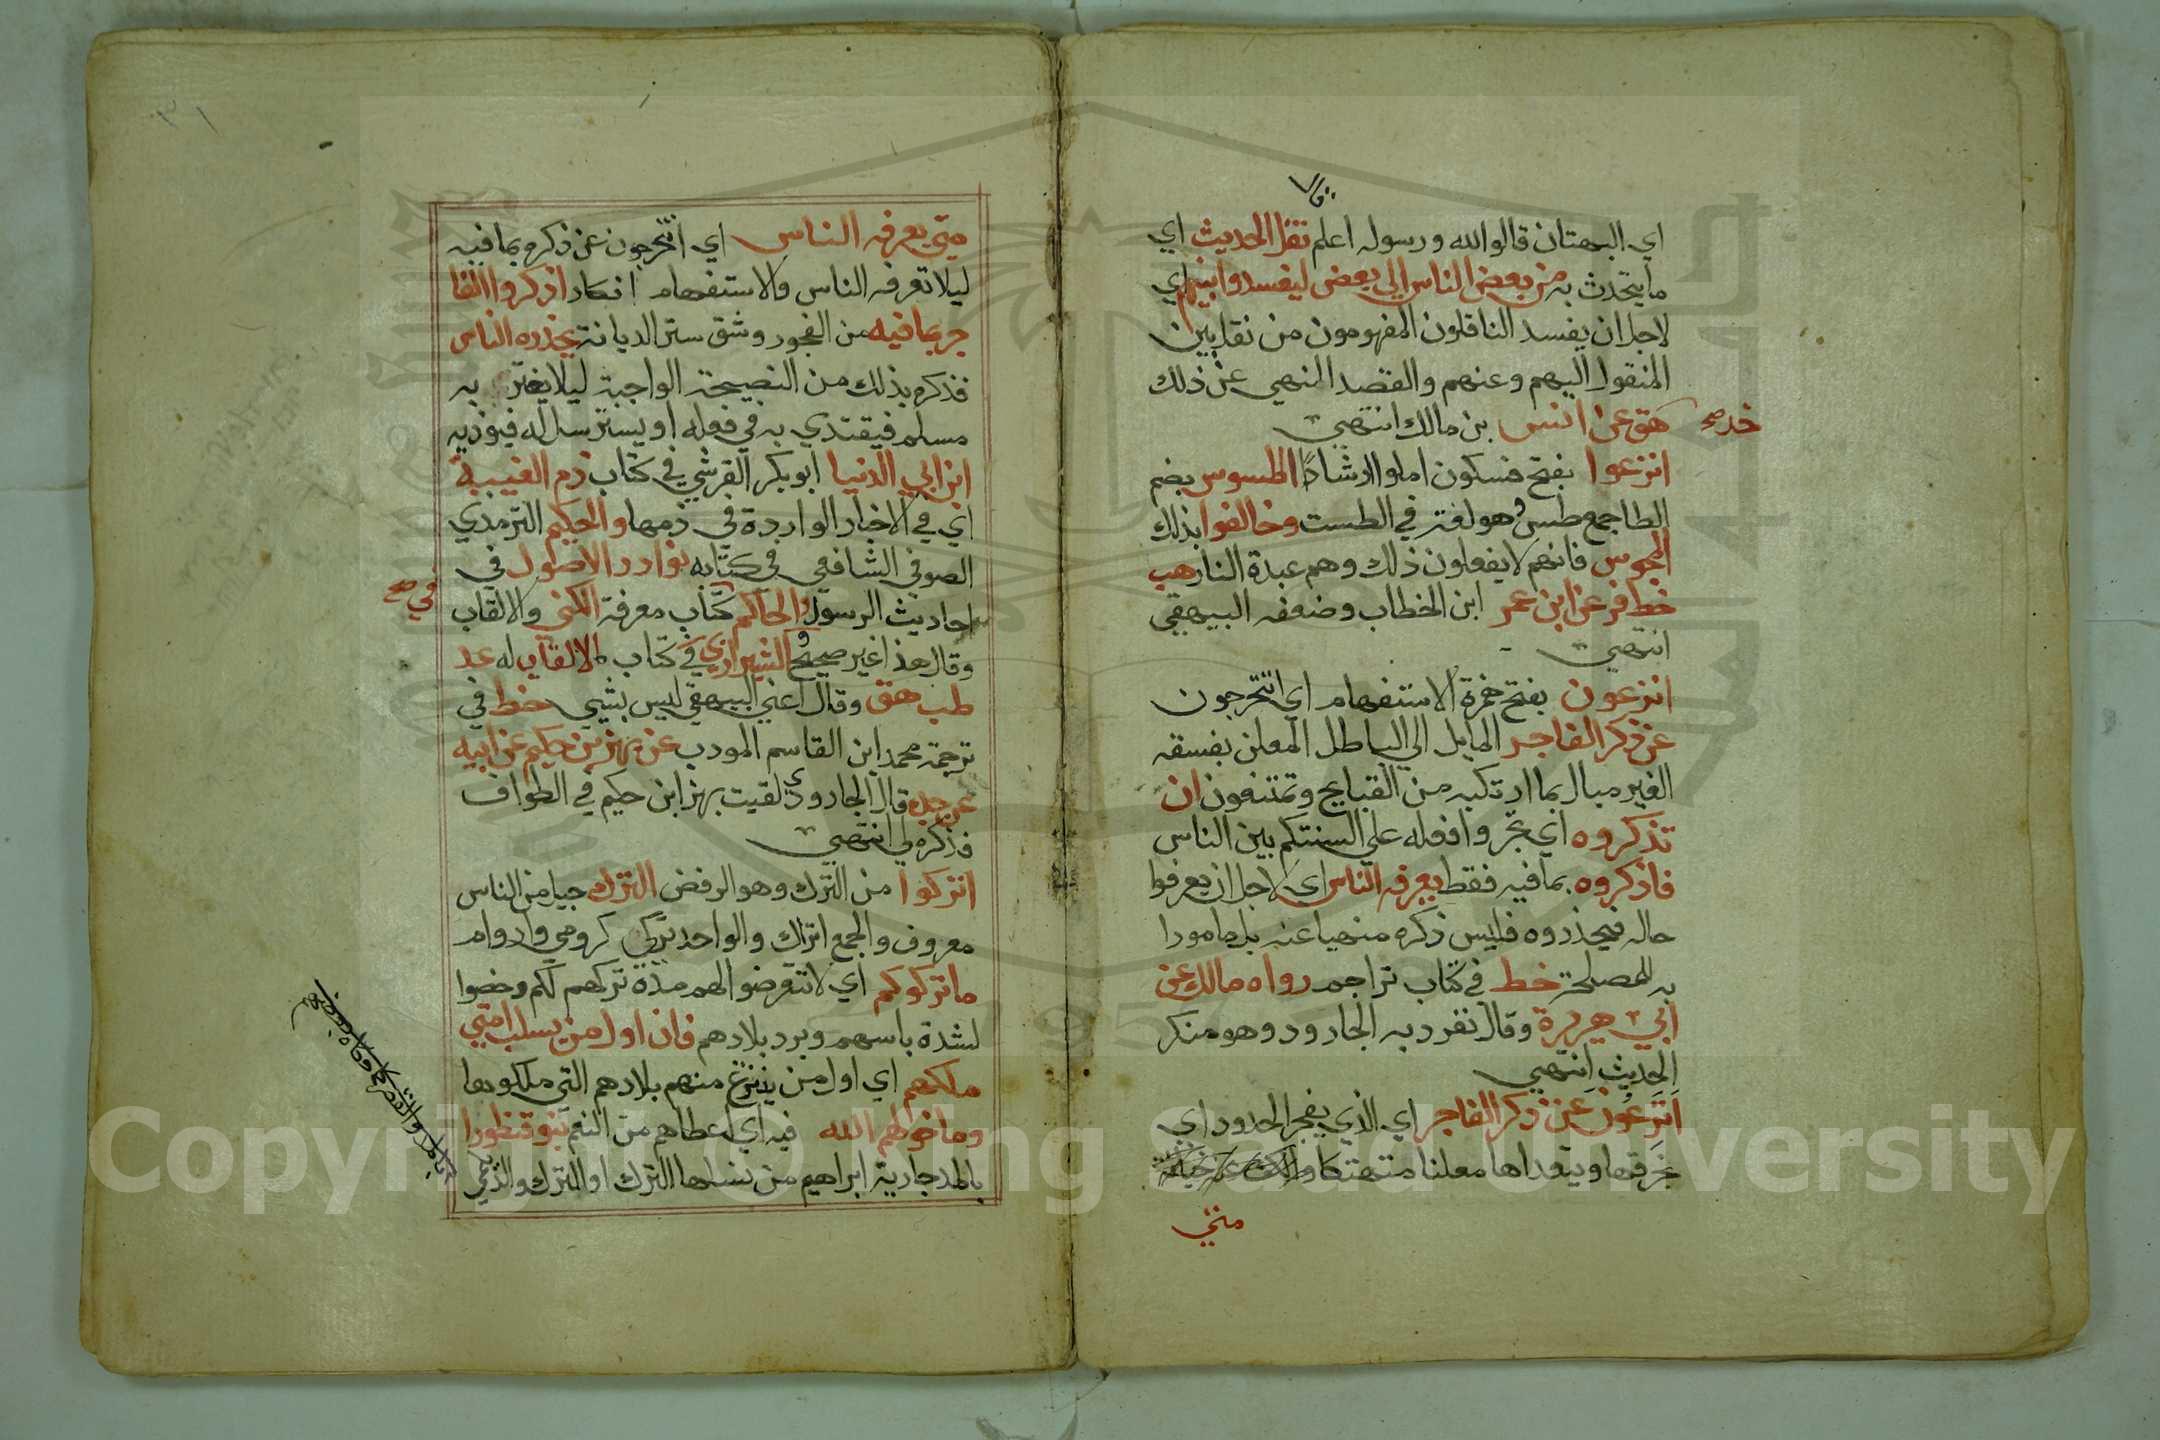 قال
اي البهتان قالوا الله ورسوله اعلم نقل الحديث اي
ما يتحدث به من بعض الناس الي بعض ليفسدوا بينهم اي
لاجل ان يفسد الناقلون المفهومون من نقل بين
المنقول اليهم وعنهم والقصد المنهي عن ذلك
خد صح
هق عن انس بن مالك انتهي
اتزعوا بفتح فسكون املوا ارشادا الطسوس بضم
الطا جمع طس وهو لغة في الطست وخالفوا بذلك
المجوس فانهم لا يفعلون ذلك وهم عبدة النار هب
خط فر عن ابن عمر ابن الخطاب وضعفه البيهقي
انتهي
اتزعون بفتح همزة الاستفهام اي اتتحرجون
عن ذكر الفاجر المايل الي الباطل المعلن بفسقه
الغير مبال بما ارتكبه من القبايح وتمتنعون ان
تذكروه اي تجروا فعله علي السنتكم بين الناس
فاذكروه بما فيه فقط يعرفه الناس اي لاجل ان يعرفوا
حاله فيحذروه فليس ذكره منهيا عنه بل مامورا
به للمصلحة خط في كتاب تراجم رواه مالك عن
ابي هريرة وقال تفرد به الجارود وهو منكر
الحديث انتهي
اتزعون عن ذكر الفاجر اي الذي يفجر الحدود اي
يخرقها ويتعداها معلنا متهتكا
متي
٣١
متي يعرفه الناس اي اتتحرجون عن ذكره بما فيه
ليلا تعرفه الناس والاستفهام انكار اذكروا الفا
جر بما فيه من الفجور وشق ستر الديانة يحذره الناس
فذكره بذلك من النصيحة الواجبة ليلا يغتر به
مسلم فيقتدي به في فعله او يسترسل له فيوذيه
ابن ابي الدنيا ابو بكر القرشي في كتاب ذم الغيبة
اي في الاخبار الواردة في ذمها والحكيم الترمذي
الصوفي الشافعي في كتابه نوادر الاصول في
احاديث الرسول والحاكم كتاب معرفة الكني والالقاب
في صح
وقال هذا غير صحيح والشيرازي في كتاب الالقاب له عد
طب هق وقال اعني البيهقي ليس بشيي خط في
ترجمة محمد ابن القاسم المودب عن بهز بن حكيم عن ابيه
عن جده قال الجارودي لقيت بهز ابن حكيم في الطواف
فذكره لي انتهي
اتركوا من الترك وهو الرفض الترك جيل من الناس
معروف والجمع اتراك والواحد تركي كرومي واروام
ما تركوكم اي لا تتعرضوا لهم مدة تركهم لكم وخصوا
لشدة باسهم وبرد بلادهم فان اول من يسلب امتي
ملكهم اي اول من ينتزع منهم بلادهم التي ملكوها
وما خولهم الله فيه اي اعطاهم من النعم بنو قنطورا
بالمد جارية ابراهيم من نسلها الترك او الترك والديلم